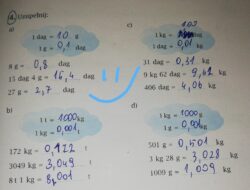 4. Uzupełnij:
a)
1 dag = 10 g
1 g = 0,1 dag
8 g = 0,8 dag
15 dag 4 g = 15,4 dag
27 g = 2,7 dag
b)
1 t = 1000 kg
1 kg = 0,001 t
172 kg = 0,172 t
3049 kg = 3,049 t
8 t 1 kg = 8,001 t
c)
1 kg = 100 dag
1 dag = 0,01 kg
31 dag = 0,31 kg
9 kg 62 dag = 9,62 kg
406 dag = 4,06 kg
d)
1 kg = 1000 g
1 g = 0,001 kg
501 g = 0,501 kg
3 kg 28 g = 3,028 kg
1009 g = 1,009 kg